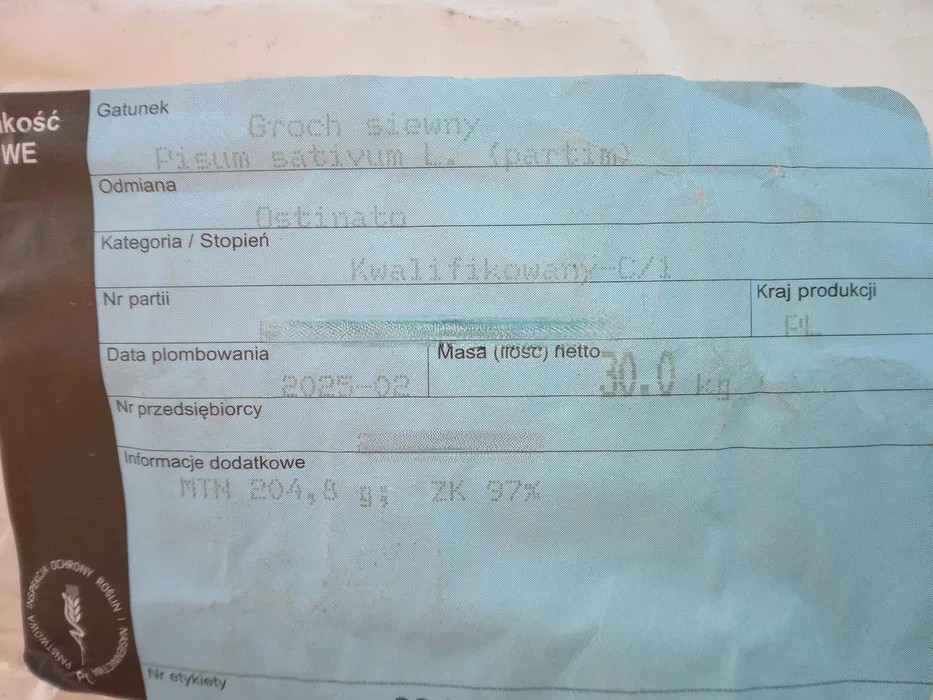 kość
WE
Gatunek
Groch siewny
Pisum sativum L. (partim)
Odmiana
Ostinato
Kategoria / Stopień
Kwalifikowany-C/1
Nr partii
Kraj produkcji
PL
Data plombowania
2025-02
Masa (ilość) netto
30.0 kg
Nr przedsiębiorcy
Informacje dodatkowe
MTN 204,8 g; ZK 97%
PAŃSTWOWA INSPEKCJA OCHRONY ROŚLIN I NASIENNICTWA
PL
Nr etykiety